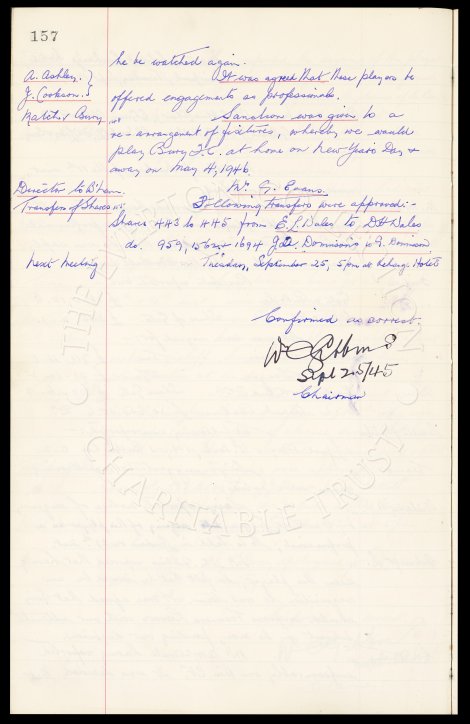 157
he be watched again.
A. Ashley. }
J. Cookson. }
It was agreed that these players be
offered engagements as professionals.
Match v Bury
Sanction was given to a
re-arrangement of fixtures, whereby we would
play Bury F.C. at home on New Years Day &
away on May 4, 1946.
Director to B'ham.
Mr. G. Evans.
Transfers of Shares
Following transfers were approved:-
Shares 443 to 445 from E.L. Dales to D.H Dales
do. 959, 1694 Dennison to Dennison
Next Meeting
Tuesday, September 25, 5pm at Hotel
Confirmed as correct.
Sept 25/45
Chairman
THE EVERTON COLLECTION
CHARITABLE TRUST